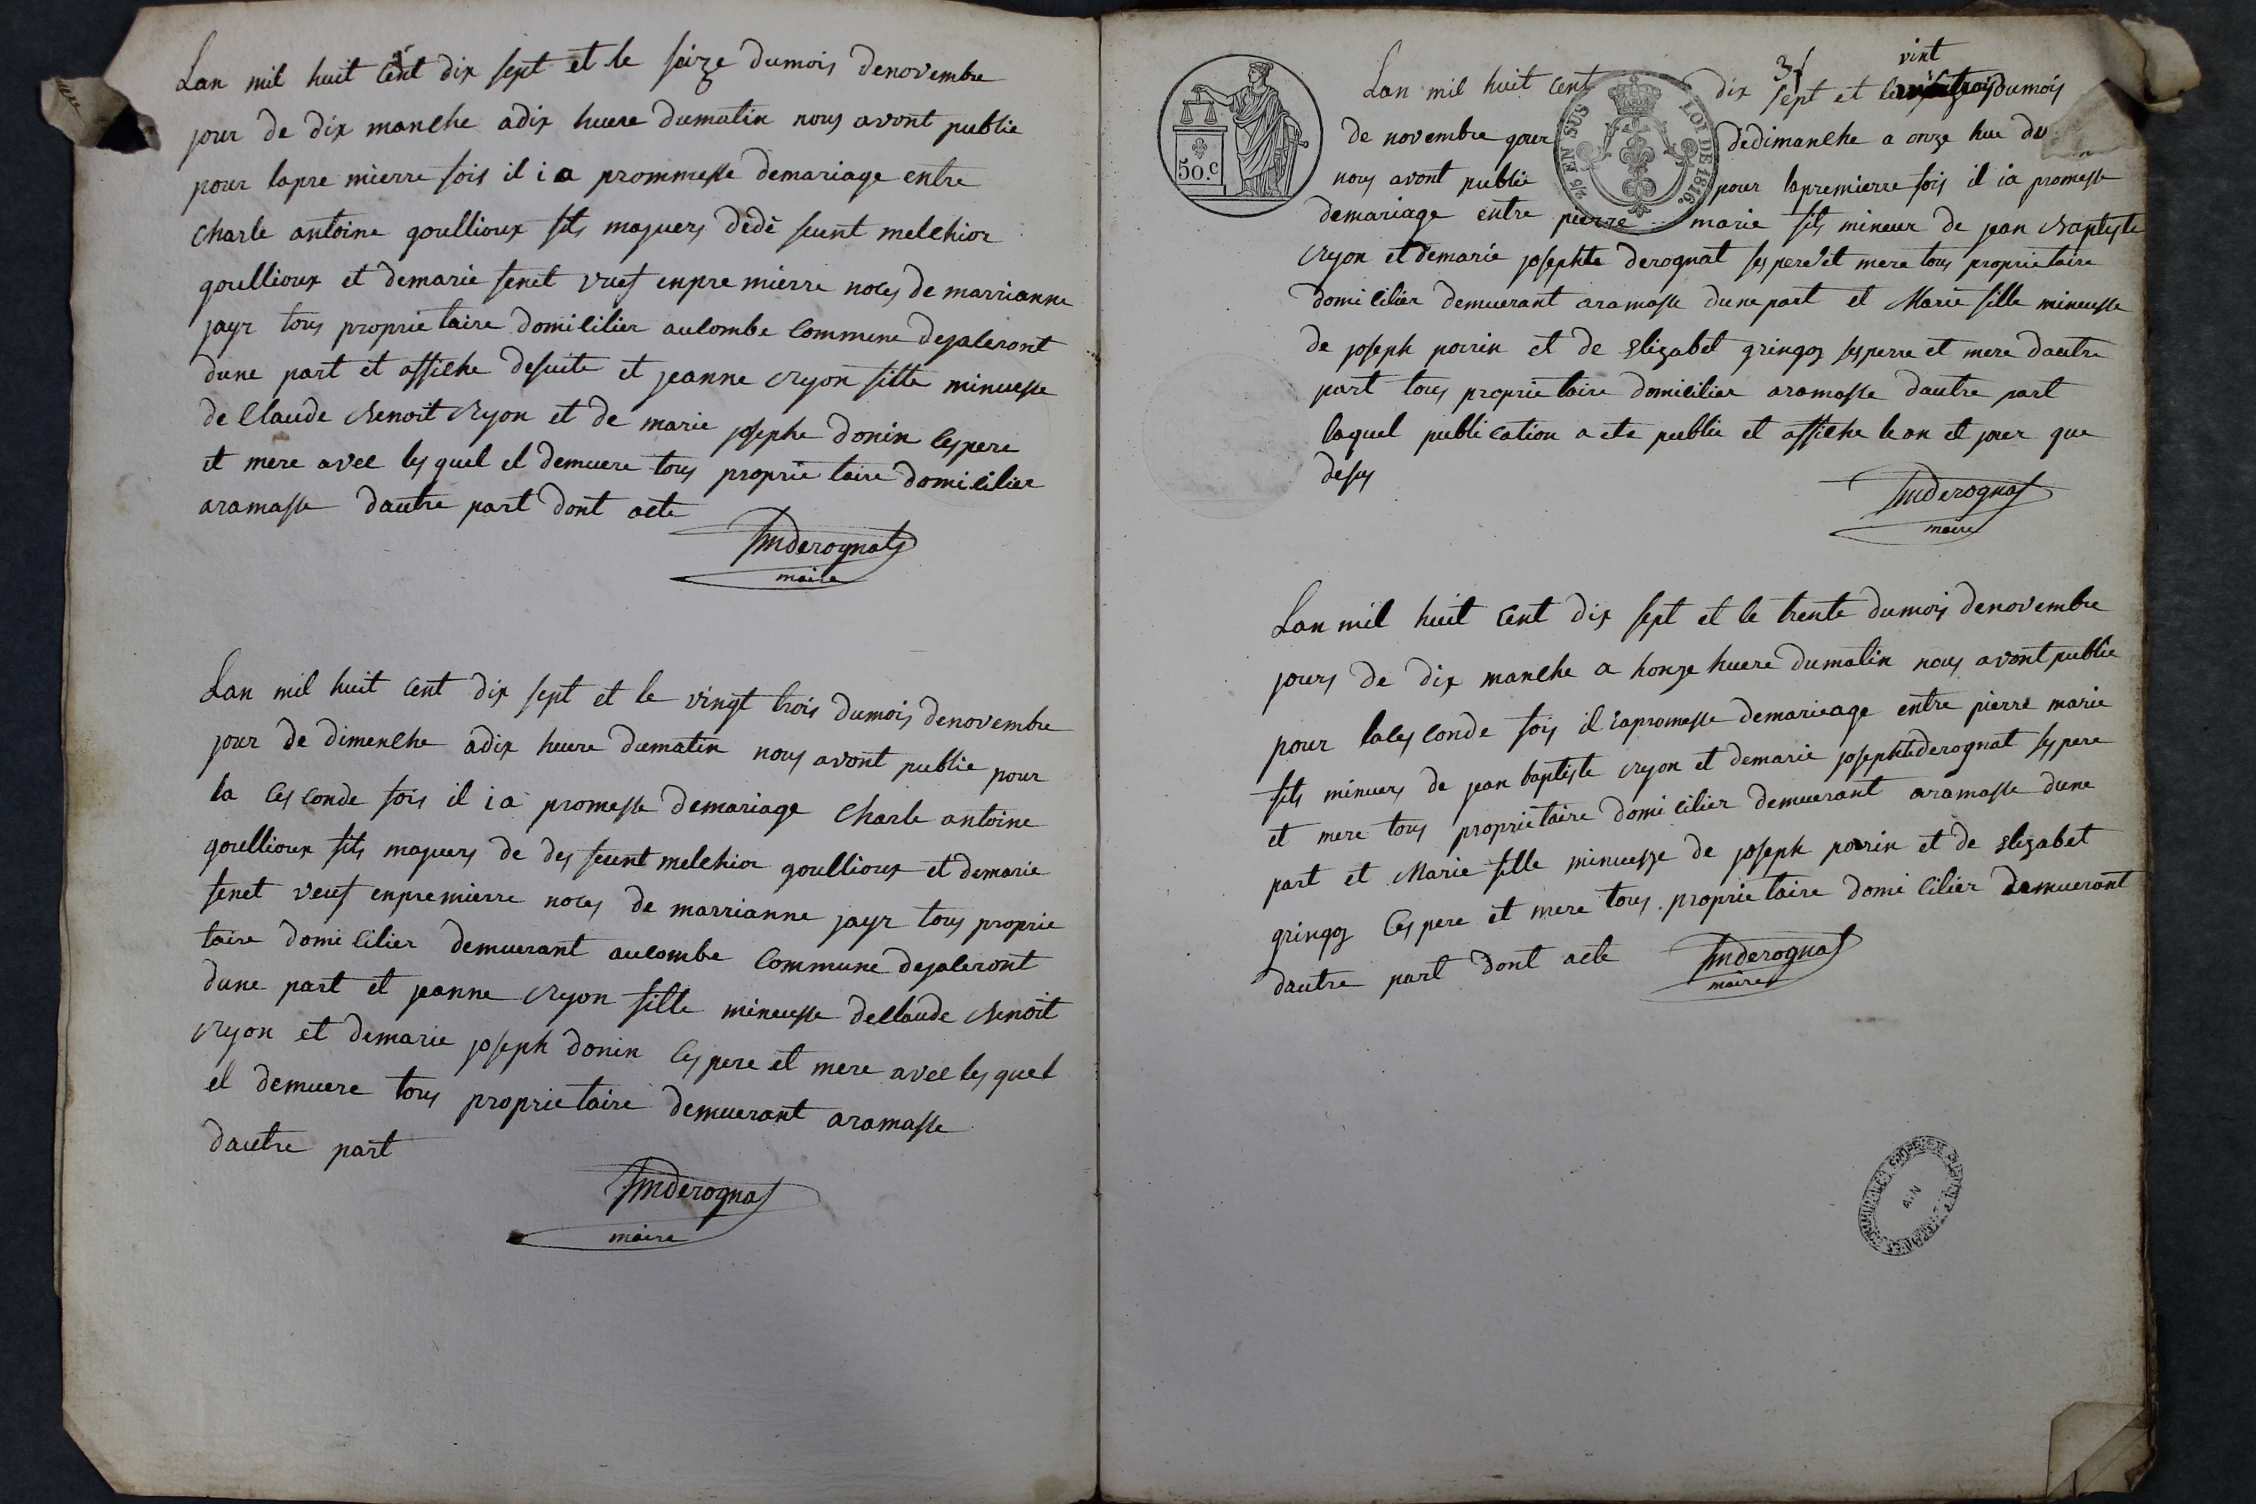 Lan mil huit Cent dix sept et le seize dumois denovembre
jour de dix manche adix huere dumatin nous avont publie
pour lapre mierre fois il i a prommesse demariage entre
Charle antoine goullioux fils majuers dedé feunt melchior
goullioux et demarie fenet vuef enpre mierre noces de marrianne
jayr tous proprie taire domicilier aulombe Commune dejaleront
dune part et affiche desuite et jeanne Ryon fille minuesse
de Claude Benoit Ryon et de marie josephe donin Ces pere
et mere avec les quel el demuere tous proprie taire domicilier
aramasse dautre part dont acte
Jmderognat
maire
Lan mil huit Cent dix sept et le vingt trois dumois denovembre
jour de dimenche adix huere dumatin nous avont publie pour
la Ces Conde fois il i a promesse demariage Charle antoine
goullioux fils majuers de des feunt melchior goullioux et demarie
fenet veuf enpremierre noces de marrianne jayr tous proprie
taire domi Cilier demuerant aulombe Commune dejaleront
dune part et jeanne Ryon fille minuesse deClaude Benoit
Ryon et demarie joseph donin Ces pere et mere avec les quel
el demuere tous proprie taire demuerant aramasse
dautre part
Jmderognat
maire
50.C
2/5 EN SUS LOI DE 1816.
vint
Lan mil huit Cent dix sept et le dumois
de novembre jour dedimanche a onze hue du
nous avont publie pour lapremierre fois il ia promesse
demariage entre pierre marie fils mineur de jean Baptiste
Ryon et demarie josephte derognat ses pere et mere tous proprietaire
domicilier demuerant aramasse dune part et Marie fille mineusse
de joseph poirin et de Elizabet gringoz ses perre et mere dautre
part tous proprie taire domicilier aramasse dautre part
laquel publication a ete publie et affiche le an et jour que
desus
Jmderognat
maire
Lan mil huit Cent dix sept et le trente dumois denovembre
jours de dix manche a honze huere dumatin nous avont publie
pour laCes Conde fois il iapromesse demarieage entre pierre marie
fils minuers de jean baptiste Ryon et demarie josephtederognat ses pere
et mere tous proprietaire domi cilier demuerant aramasse dune
part et Marie fille minuesse de joseph poirin et de Elizabet
gringoz Ces pere et mere tous proprie taire domi Cilier demuerant
dautre part dont acte
Jmderognat
maire
AIN